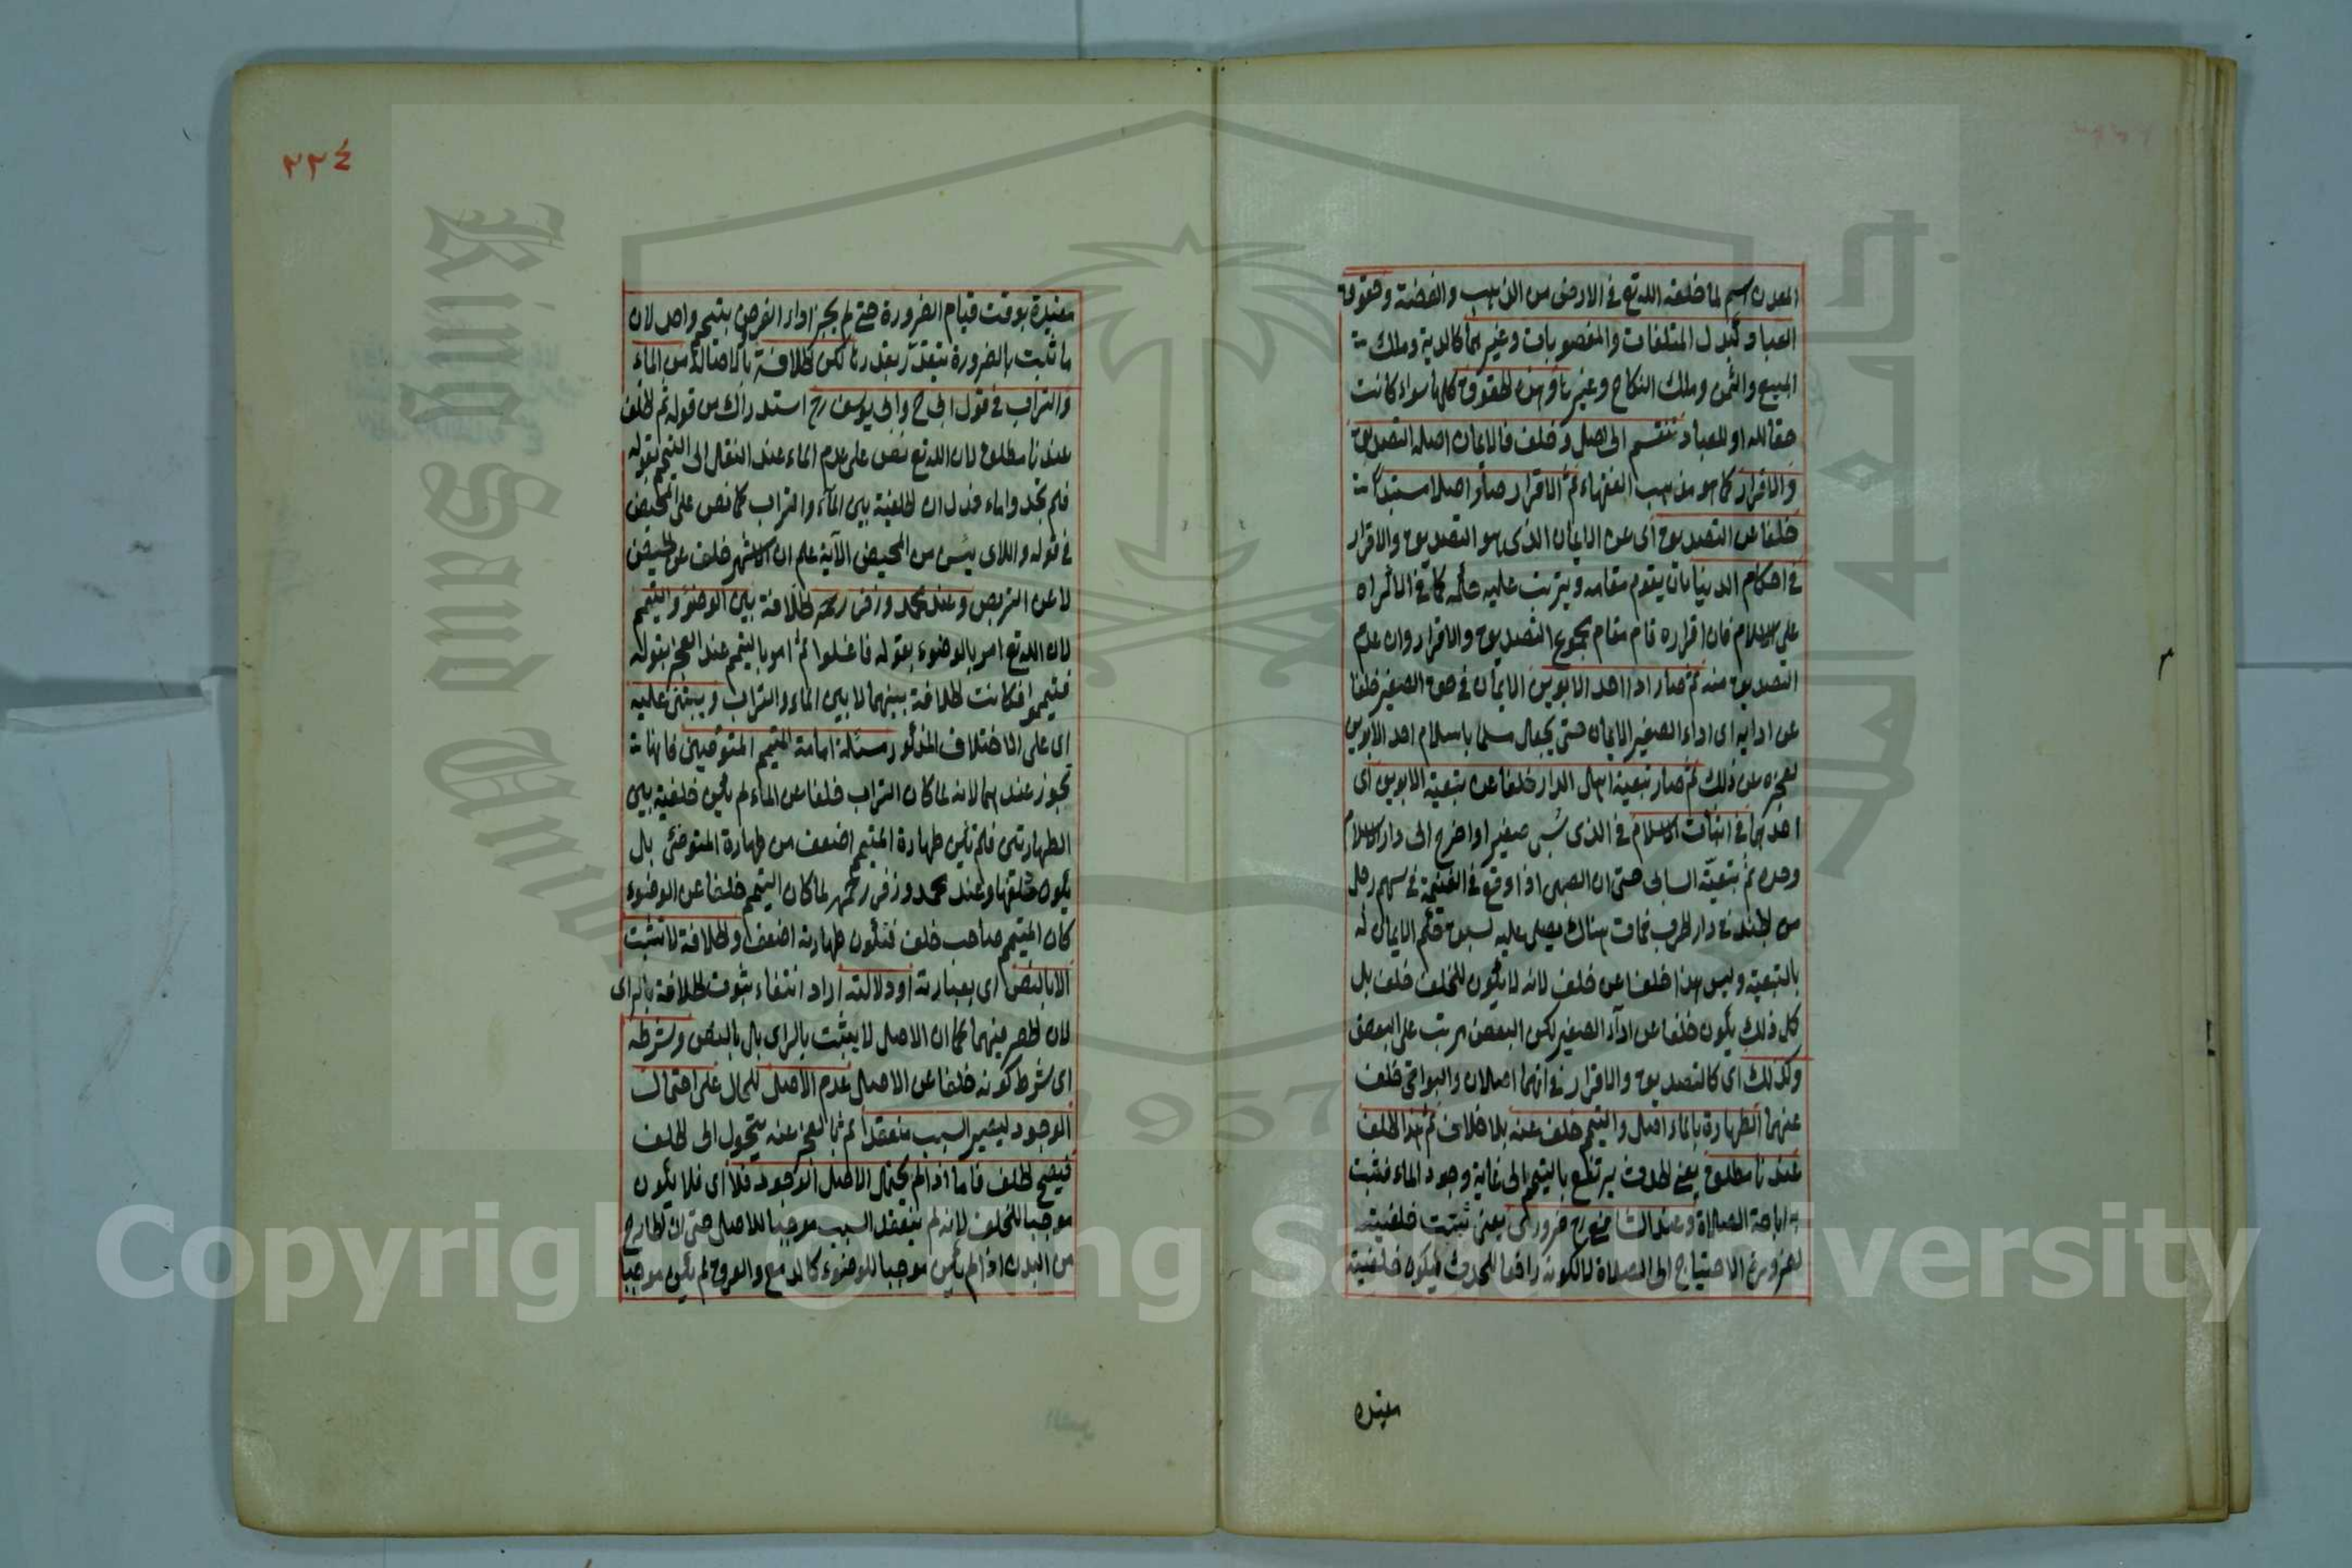 المعدن اسم لما خلقه الله تع في الارض من الذهب والفضة وحقوق
العباد كبدل المتلفات والمغصوبات وغيرهما كالدية وملك
المبيع والثمن وملك النكاح وغيرها وهذه الحقوق كلها سواء كانت
حقا لله او للعباد تنقسم الى اصل وخلف فالايمان اصله التصديق
والاقرار كما هو مذهب الفقهاء ثم الاقرار صار اصلا مستبدا
خلفا عن التصديق اى عن الايمان الذى هو التصديق والاقرار
في احكام الدنيا بان يقوم مقامه ويترتب عليه حكمه كما في الاكراه
على الاسلام فان اقراره قام مقام مجموع التصديق والاقرار وان عدم
التصديق منه ثم صار اداء احد الابوين الايمان في حق الصغير خلفا
عن ادايه اى اداء الصغير الايمان حتى يجعل مسلما باسلام احد الابوين
لعجزه عن ذلك ثم صار تبعية اهل الدار خلفا عن تبعية الابوين اى
احدهما في اثبات الاسلام في الذى سبى صغيرا واخرج الى دار الاسلام
وحده ثم تبعية السابى حتى ان الصبى اذا وقع في الغنيمة في سهم رجل
من الجند في دار الحرب فمات هناك يصلى عليه لسبق حكم الايمان له
بالتبعية وليس هذا خلفا عن خلف لانه لا يكون للخلف خلف بل
كل ذلك يكون خلفا عن اداء الصغير لكن البعض مرتب على البعض
وكذلك اى كالتصديق والاقرار في انهما اصلان والبواقى خلف
عنهما الطهارة بالماء اصل والتيمم خلف عنه بلا خلاف ثم هذا الخلف
عندنا مطلق يعنى الحدث يرتفع بالتيمم الى غاية وجود الماء فيثبت
به اباحة الصلاة وعند الشافعى رح ضرورى يعنى تثبت خلفيته
لضرورة الاحتياج الى الصلاة لا لكونه رافعا للحدث فيكون خلفيته
مقيدة
٢٢٤
مقيدة بوقت قيام الضرورة حتى لم يجز اداء الفرض بتيمم واحد لان
ما ثبت بالضرورة يتقدر بقدرها لكن الخلافة بالاصالة من الماء
والتراب في قول ابى ح وابى يوسف رح استدراك من قوله ثم الخلف
عندنا مطلق لان الله تع نص على عدم الماء عند النقل الى التيمم بقوله
فلم تجدوا ماء فدل ان الخلفية بين الماء والتراب كما نص على المحيض
في قوله واللاى يئسن من المحيض الآية علم ان الاشهر خلف عن الحيض
لا عن التربص وعند محمد وزفر رحمه الخلافة بين الوضوء والتيمم
لان الله تع امر بالوضوء بقوله فاغسلوا ثم امر بالتيمم عند العجز بقوله
فتيمموا فكانت الخلافة بينهما لا بين الماء والتراب ويبتنى عليه
اى على الاختلاف المذكور مسئلة امامة المتيمم المتوضيين فانها
تجوز عندهما لانه لما كان التراب خلفا عن الماء لم يكن خلفية بين
الطهارتين فلم تكن طهارة المتيمم اضعف من طهارة المتوضى بل
يكون مثلها وعند محمد وزفر رحمهم لما كان التيمم خلفا عن الوضوء
كان المتيمم صاحب خلف فتكون طهارته اضعف والخلافة لا تثبت
الا بالنص اى بعبارته او دلالته اراد انتفاء ثبوت الخلافة بالراى
لان الحصر فيهما كما ان الاصل لا يثبت بالراى بل بالنص وشرطه
اى شرط كونه خلفا عن الاصل عدم الاصل للحال على احتمال
الوجود ليصير السبب منعقدا ثم بالعجز عنه يتحول الى الخلف
فيصح الخلف فاما اذا لم يحتمل الاصل الوجود فلا اى فلا يكون
موجبا للخلف لانه لم ينعقد السبب موجبا للاصل حتى ان الخارج
من البدن اذا لم يكن موجبا للوضوء كالدمع والعروق لم يكن موجبا
Copyright © King Saud University
King Saud University
1957